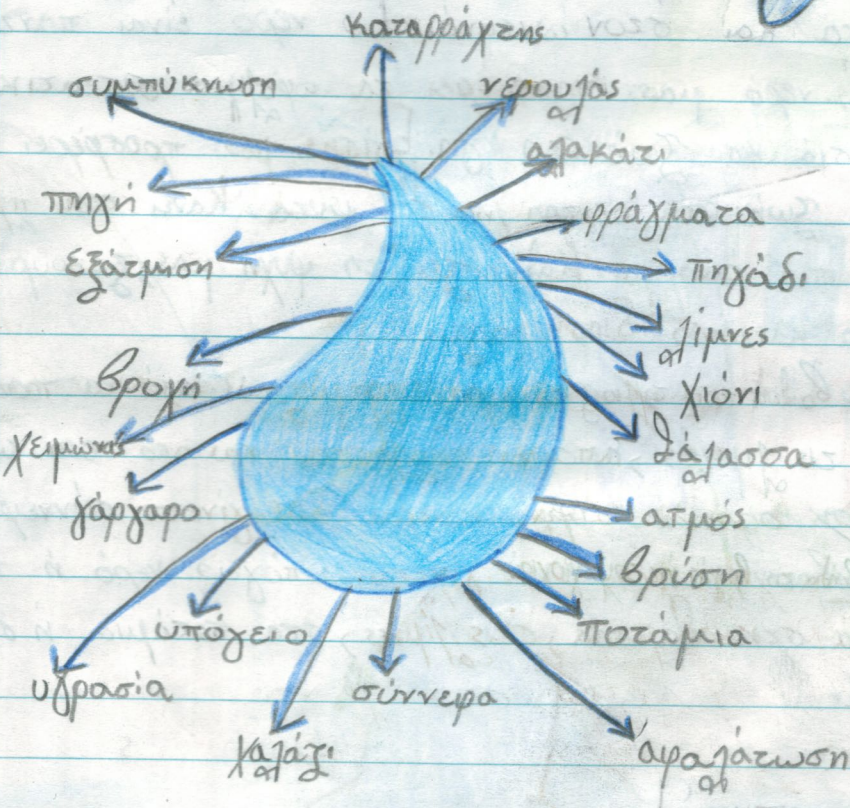 καταρράχτης
συμπύκνωση
νερουλάς
αλακάτι
πηγή
φράγματα
εξάτμιση
πηγάδι
λίμνες
βροχή
χιόνι
χειμώνας
θάλασσα
γάργαρο
ατμός
βρύση
υπόγειο
ποτάμια
υγρασία
σύννεφα
χαλάζι
αφαλάτωση